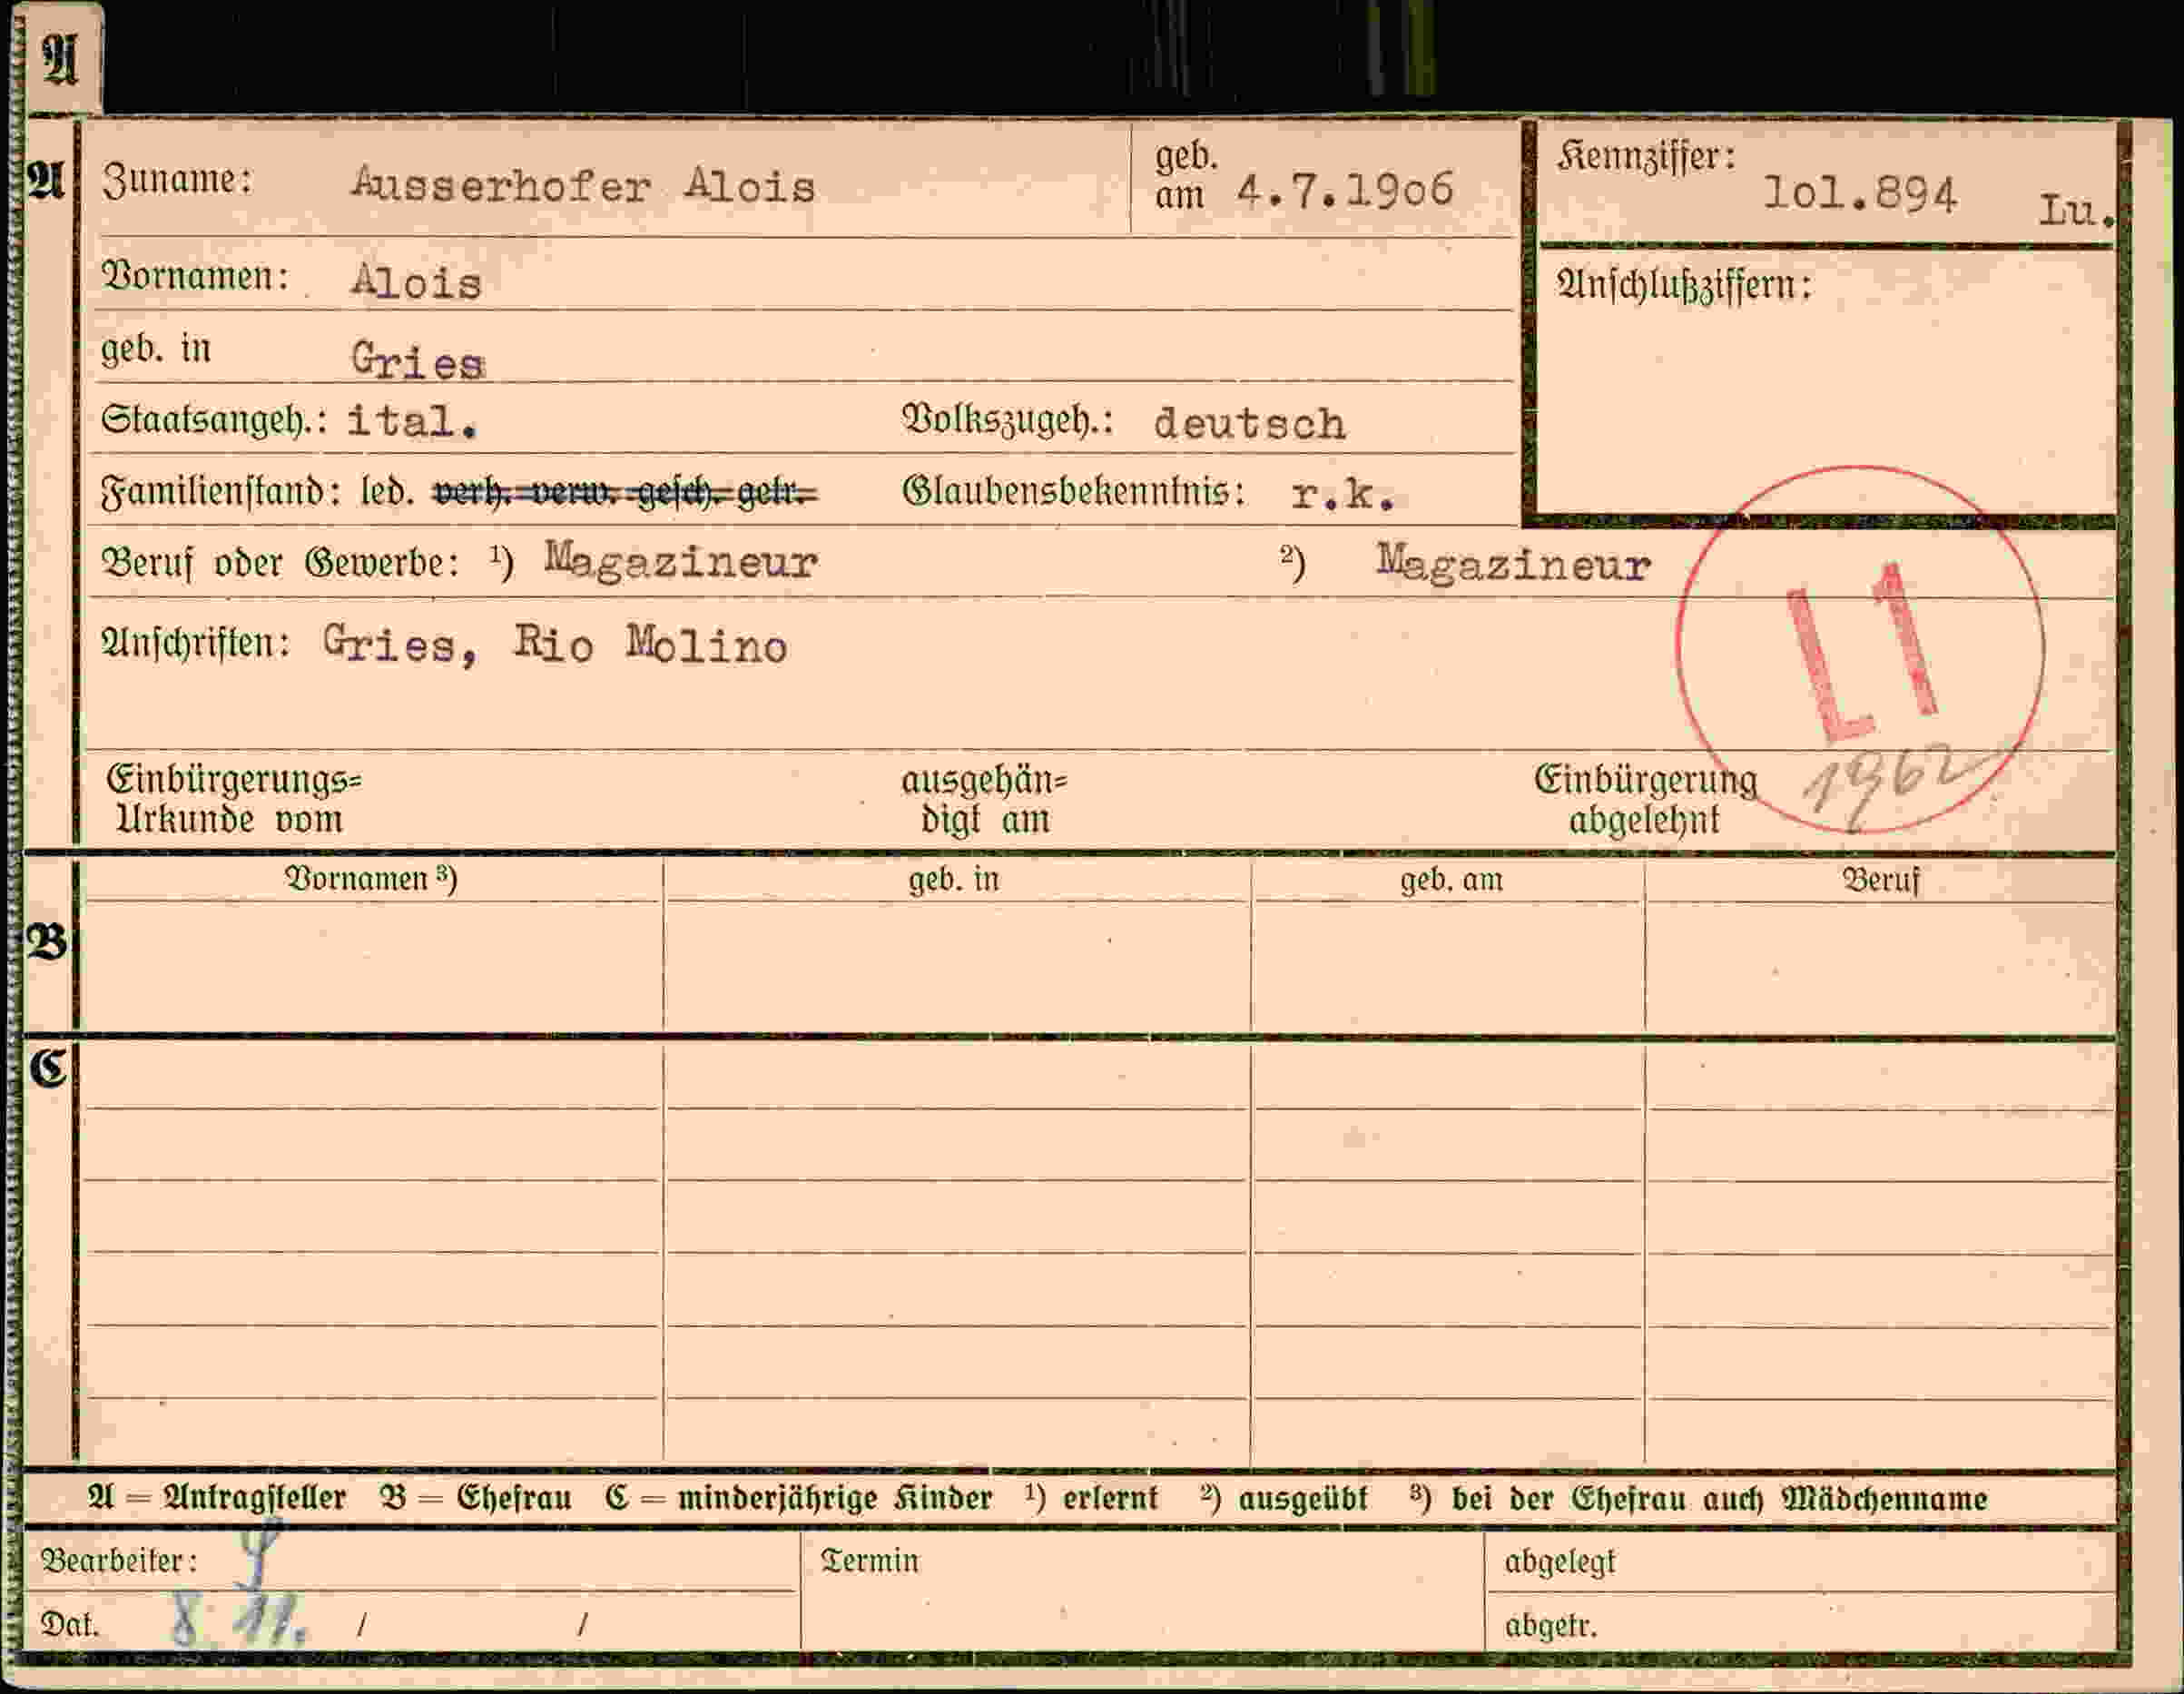 A
A Zuname: Ausserhofer Alois geb. am 4.7.1906 Kennziffer: 1o1.894 Lu.
Vornamen: Alois Anschlußziffern:
geb. in Gries
Staatsangeh.: ital. Volkszugeh.: deutsch
Familienstand: led. verh. verw. gesch. getr. Glaubensbekenntnis: r.k.
Beruf oder Gewerbe: ¹) Magazineur ²) Magazineur
L1
Anschriften: Gries, Rio Molino
1962
Einbürgerungs= ausgehän= Einbürgerung
Urkunde vom digt am abgelehnt
Vornamen ³) geb. in geb. am Beruf
B
C
A = Antragsteller B = Ehefrau C = minderjährige Kinder ¹) erlernt ²) ausgeübt ³) bei der Ehefrau auch Mädchenname
Bearbeiter: Termin abgelegt
Dat. 8 11. / / abgetr.